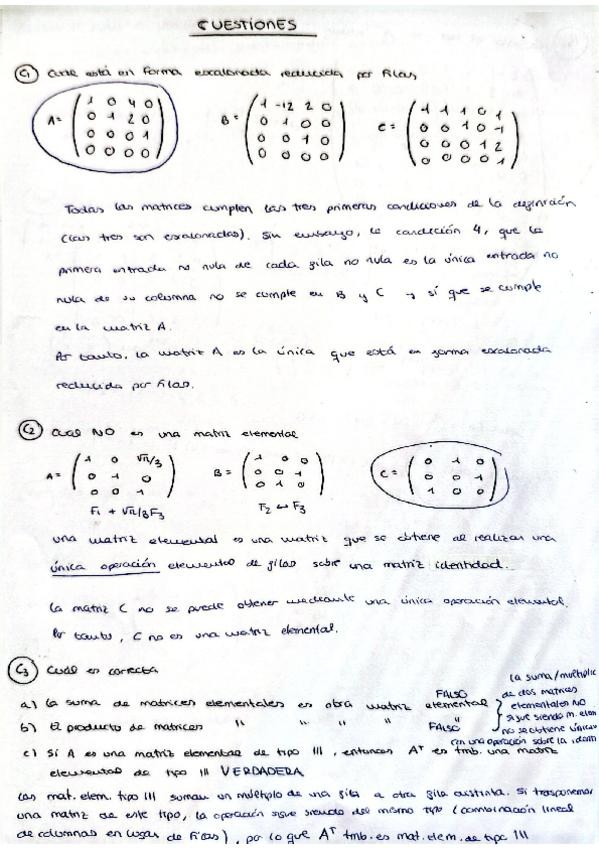 CUESTIONES
C1 Cual está en forma escalonada reducida por filas
A = ( 1 0 4 0 B = ( 1 -12 2 0 C = ( 1 1 1 0 1
0 1 2 0 0 1 0 0 0 0 1 0 -1
0 0 0 1 0 0 1 0 0 0 0 1 2
0 0 0 0 ) 0 0 0 0 ) 0 0 0 0 1 )
Todas las matrices cumplen las tres primeras condiciones de la definición
(las tres son escalonadas). Sin embargo, la condición 4, que la
primera entrada no nula de cada fila no nula es la única entrada no
nula de su columna no se cumple en B y C → sí que se cumple
en la matriz A.
Por tanto, la matriz A es la única que está en forma escalonada
reducida por filas.
C2 Cual NO es una matriz elemental
A = ( 1 0 √π/3 B = ( 1 0 0 C = ( 0 1 0
0 1 0 0 0 1 0 0 1
0 0 1 ) 0 1 0 ) 1 0 0 )
F1 + √π/3 F3 F2 ↔ F3
una matriz elemental es una matriz que se obtiene al realizar una
única operación elemental de filas sobre una matriz identidad.
La matriz C no se puede obtener mediante una única operación elemental.
Por tanto, C no es una matriz elemental.
C3 Cual es correcta
a) La suma de matrices elementales es otra matriz elemental FALSO
b) El producto de matrices " " " " " FALSO
la suma/multiplic
de dos matrices
elementales NO
sigue siendo m. elem
no se obtiene única
con una operación sobre la identi
c) Si A es una matriz elemental de tipo III, entonces Aᵀ es tmb. una matriz
elemental de tipo III VERDADERA
Las mat. elem. tipo III suman un múltiplo de una fila a otra fila distinta. Si trasponemos
una matriz de este tipo, la operación sigue siendo del mismo tipo (combinación lineal
de columnas en lugar de filas), por lo que Aᵀ tmb. es mat. elem. de tipo III